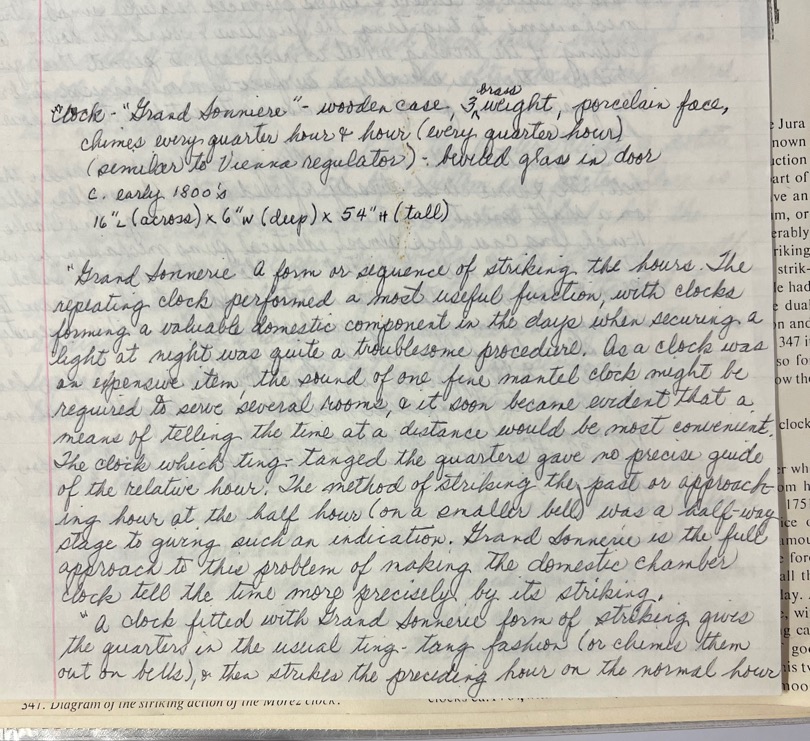 Clock - "Grand Sonniere" - wooden case, 3 brass weight, porcelain face,
chimes every quarter hour & hour (every quarter hour)
(similar to Vienna regulator) - beveled glass in door
c. early 1800's
16"L (across) x 6"W (deep) x 54"H (tall)
"Grand Sonnerie A form or sequence of striking the hours. The
repeating clock performed a most useful function, with clocks
forming a valuable domestic component in the days when securing a
light at night was quite a troublesome procedure. As a clock was
an expensive item, the sound of one fine mantel clock might be
required to serve several rooms, & it soon became evident that a
means of telling the time at a distance would be most convenient.
The clock which ting-tanged the quarters gave no precise guide
of the relative hour. The method of striking the past or approach-
ing hour at the half hour (on a smaller bell) was a half-way
stage to giving such an indication. Grand Sonnerie is the full
approach to this problem of making the domestic chamber
clock tell the time more precisely by its striking.
"A clock fitted with Grand Sonnerie form of striking gives
the quarters in the usual ting-tang fashion (or chimes them
out on bells), & then strikes the preceding hour on the normal hour
341. Diagram of the striking action of the Morez clock.
Jura
nown
uction
art of
ve an
m, or
erably
riking
strik-
le had
e dual
n and
347 i
so fo
ow the
clock
er wh
om h
175
ice
amou
fore
all th
lay.
wi
g ca
go
is tv
noo